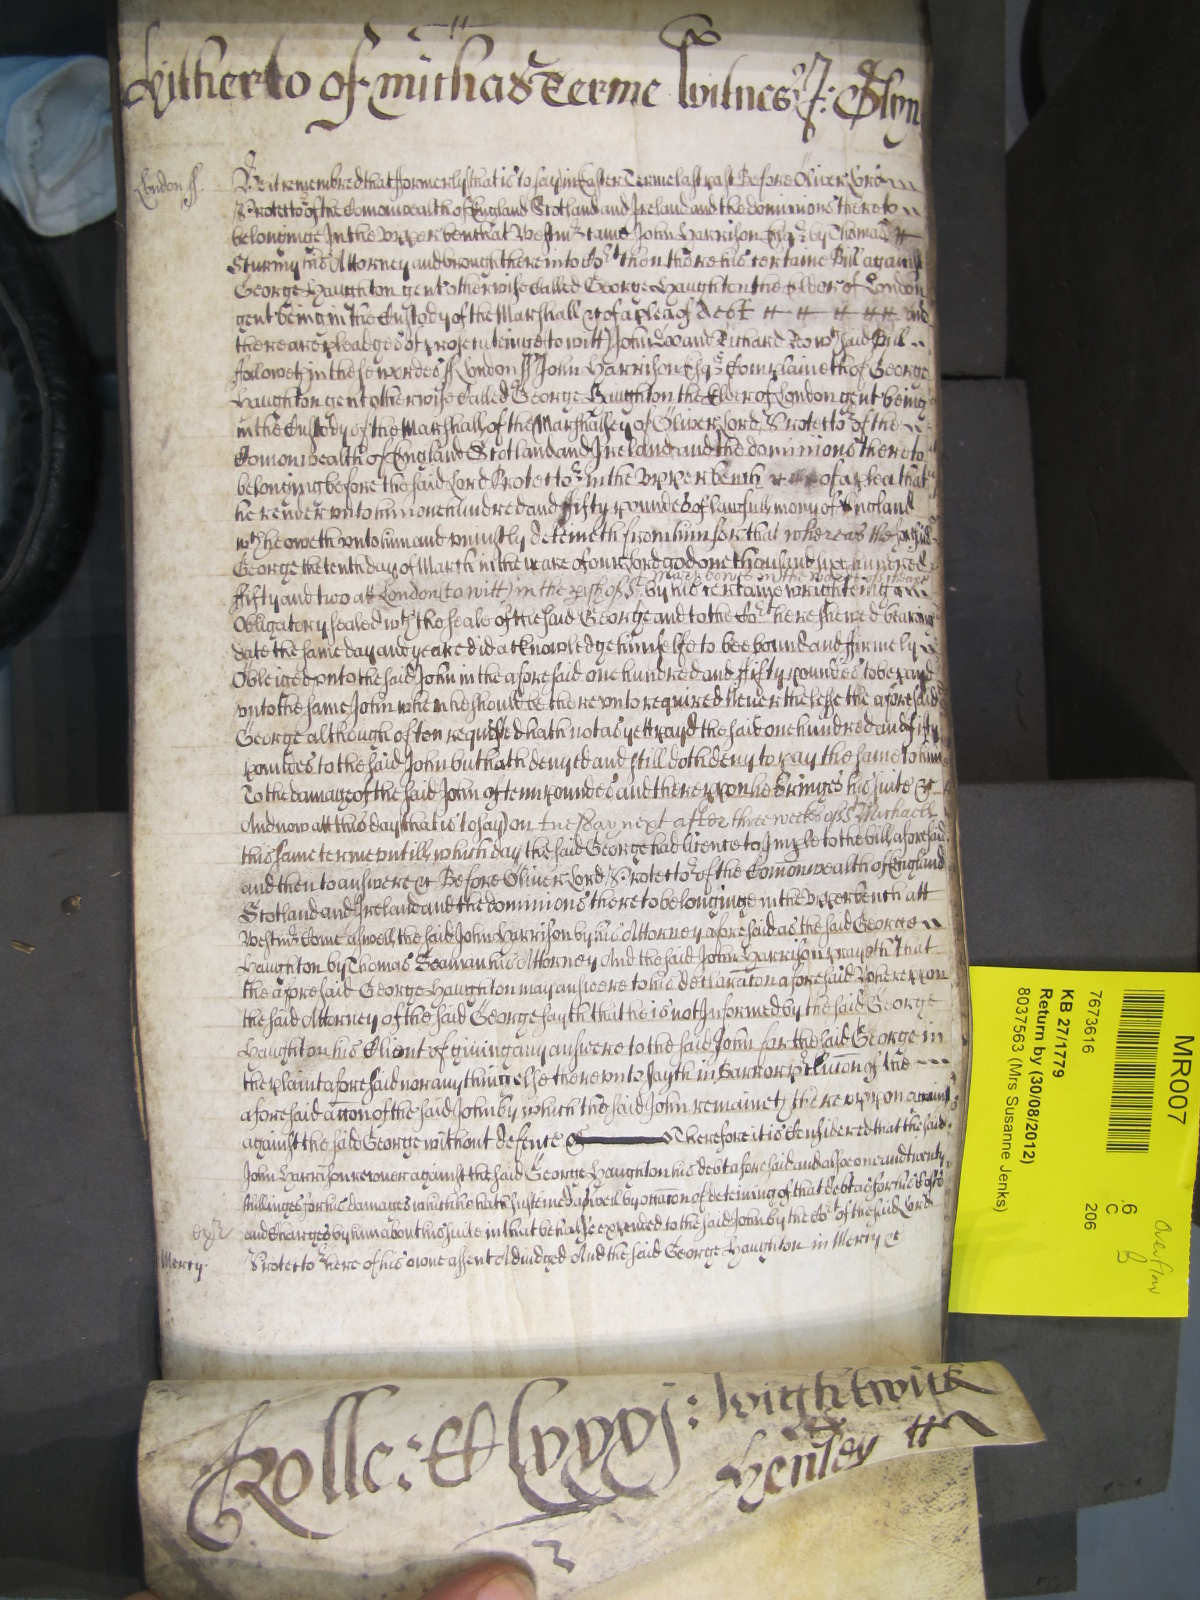 Hitherto of Michas Terme Witnes J: Glyn
London ss
Be it remembred that formerly that is to say in Easter Terme last past Before Oliver Lord
Protector of the Comonwealth of England Scotland and Ireland and the dominions thereto
belonginge In the Upper bench at Westmr came John Harrison Esqr by Thomas
Sturmy his Attorney and brought here into Cort then there his certaine Bill against
George Haughton gent otherwise called George Haughton the Elder of London
gent being in the Custody of the Marshall &c of a plea of debt and
there are pledges of prosecuteinge to witt John Doo and Richard Roo wch said Bill
followeth in these wordes ss London ss John Harrison Esqr Complaineth of George
Haughton gent otherwise called George Haughton the Elder of London gent being
in the Custody of the Marshall of the Marshalsey of Oliver Lord Protector of the
Comonwealth of England Scotland and Ireland and the dominions thereto
belonging before the said Lord Protector in the Upper bench of a plea that
he render unto him one hundred and fifty poundes of lawfull mony of England
wch he oweth unto him and uniustly deteineth from him for that whereas the foresaid
George the tenth day of March in the yeare of our lord god one thousand six hundred
fifty and two att London (to witt) in the pish of St Mary bowe in the warde of Cheape by his certaine wrighteing
Obligatory sealed wth the seale of the said George and to the Cort here shewed bearing
date the same day and yeare did acknowledge himselfe to bee bound and firmely
Obleiged unto the said John in the aforesaid one hundred and fifty poundes to be payd
unto the same John when he should be thereunto required Neverthelesse the aforesaid
George although often requested hath not as yett payd the said one hundred and fifty
poundes to the said John but hath denyed and still doth deny to pay the same to him
To the damage of the said John of tenn poundes and thereupon he bringes his suite &c
And now att this day that is to say on tuesday next after three weekes of St Michaell
this same terme untill which day the said George had licence to Imple to the bill aforesaid
and then to answere &c Before Oliver Lord Protector of the Comonwealth of England
Scotland and Ireland and the dominions thereto belonginge in the Upper bench att
Westmr Come aswell the said John Harrison by his Attorney aforesaid as the said George
Haughton by Thomas Seaman his Attorney And the said John Harrison prayeth that
the aforesaid George Haughton may answere to his declaracon aforesaid Whereupon
the said Attorney of the said George sayth that he is not Informed by the said George
Haughton his Client of giving any answere to the said John for the said George in
the plaint aforesaid nor any thinge else thereunto sayth in Barr or pclucion of the
aforesaid accon of the said John by which the said John remaineth thereuppon against
against the said George without defence &c Therefore it is Considered that the said
John Harrison recover against the said George Haughton his debt aforesaid and alsoe one and twenty
shillinges for his damages which he hath susteined aswell by occacon of deteining of that debt as for his Costs
and Charges by him about his suite in that behalfe expended to the said John by the Cort of the said Lord
Protector here of his owne assent Adiudged And the said George Haughton in Mercy &c
Mercy
Rolle: & lxxxj: Wightwick
Henley
MR007
7673616
KB 27/1779
Return by (30/08/2012)
8037563 (Mrs Susanne Jenks)
6
C
206
Overflow